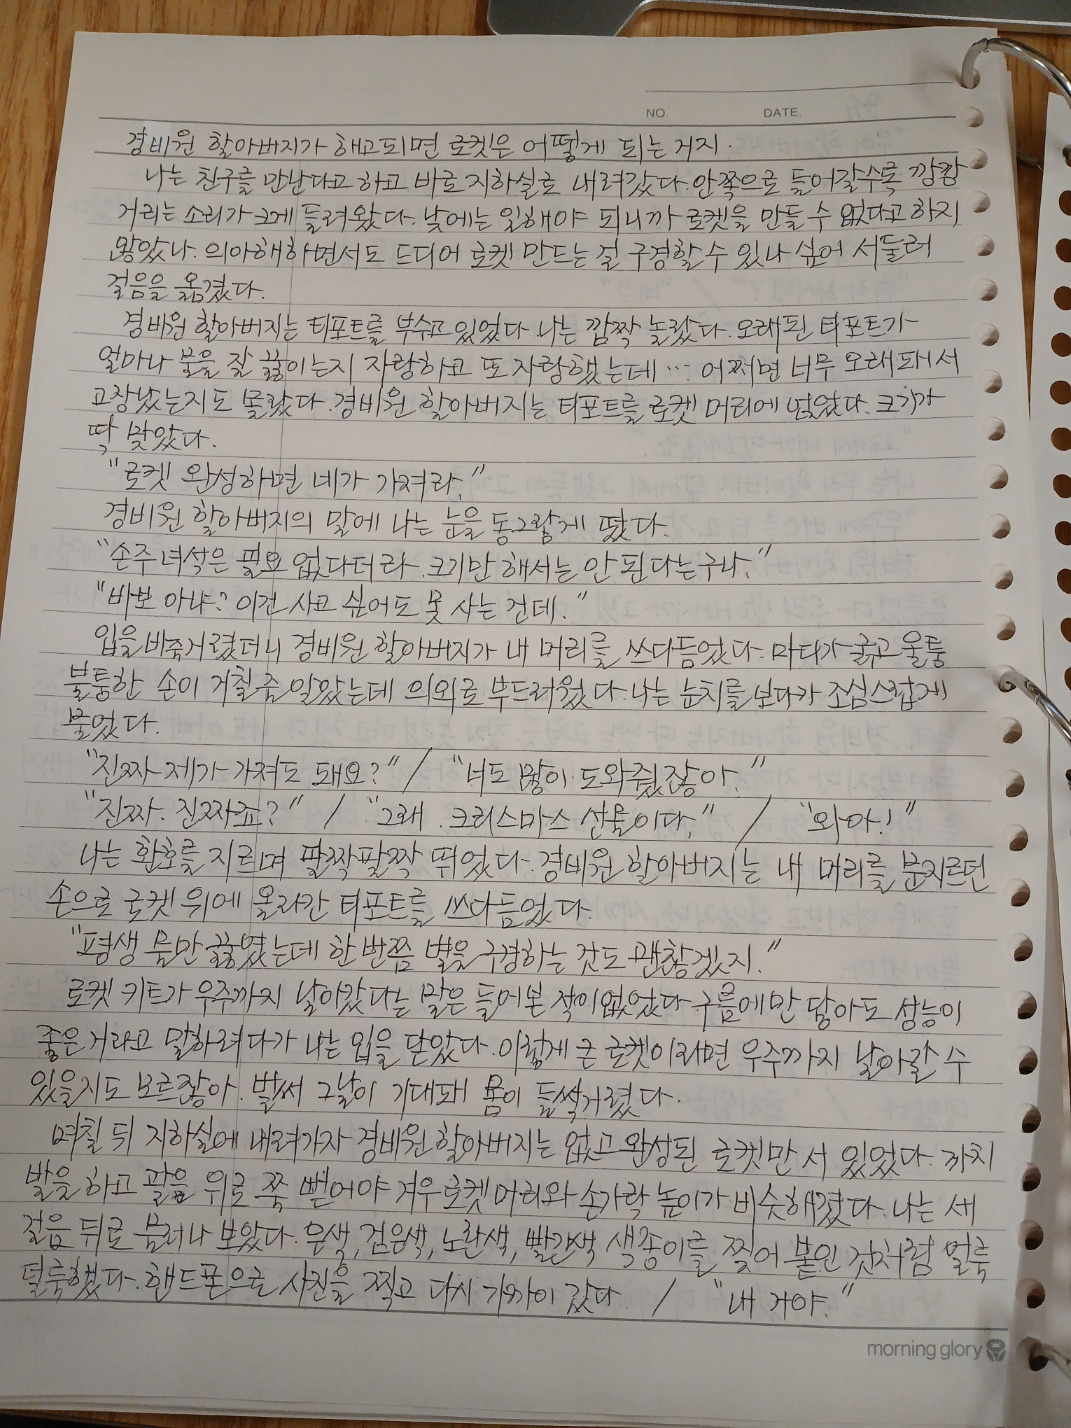 NO. DATE.
경비원 할아버지가 해고되면 로켓은 어떻게 되는 거지.
나는 친구를 만난다고 하고 바로 지하실로 내려갔다. 안쪽으로 들어갈수록 깡깡
거리는 소리가 크게 들려왔다. 낮에는 일해야 되니까 로켓을 만들 수 없다고 하지
않았나. 의아해하면서도 드디어 로켓 만드는 걸 구경할 수 있나 싶어 서둘러
걸음을 옮겼다.
경비원 할아버지는 티포트를 부수고 있었다. 나는 깜짝 놀랐다. 오래된 티포트가
얼마나 물을 잘 끓이는지 자랑하고 또 자랑했는데… 어쩌면 너무 오래돼서
고장났는지도 몰랐다. 경비원 할아버지는 티포트를 로켓 머리에 얹었다. 크기가
딱 맞았다.
"로켓 완성하면 네가 가져라."
경비원 할아버지의 말에 나는 눈을 동그랗게 떴다.
"손주 녀석은 필요 없다더라. 크기만 해서는 안 된다는구나."
"바보 아냐? 이건 사고 싶어도 못 사는 건데."
입을 비죽거렸더니 경비원 할아버지가 내 머리를 쓰다듬었다. 마디가 굵고 울퉁
불퉁한 손이 거칠 줄 알았는데 의외로 부드러웠다. 나는 눈치를 보다가 조심스럽게
물었다.
"진짜 제가 가져도 돼요?" / "너도 많이 도와줬잖아."
"진짜. 진짜죠?" / "그래. 크리스마스 선물이다." / "와아!"
나는 환호를 지르며 팔짝팔짝 뛰었다. 경비원 할아버지는 내 머리를 문지르던
손으로 로켓 위에 올라간 티포트를 쓰다듬었다.
"평생 물만 끓였는데 한 번쯤 별을 구경하는 것도 괜찮겠지."
로켓 키트가 우주까지 날아갔다는 말은 들어본 적이 없었다. 구름에만 닿아도 성능이
좋은 거라고 말하려다가 나는 입을 닫았다. 이렇게 큰 로켓이라면 우주까지 날아갈 수
있을지도 모르잖아. 벌써 그날이 기대돼 몸이 들썩거렸다.
며칠 뒤 지하실에 내려가자 경비원 할아버지는 없고 완성된 로켓만 서 있었다. 까치
발을 하고 팔을 위로 쭉 뻗어야 겨우 로켓 머리와 손가락 높이가 비슷해졌다. 나는 세
걸음 뒤로 물러나 보았다. 은색, 검은색, 노란색, 빨간색 색종이를 찢어 붙인 것처럼 얼룩
덜룩했다. 핸드폰으로 사진을 찍고 다시 가까이 갔다. / "내 거야."
morning glory